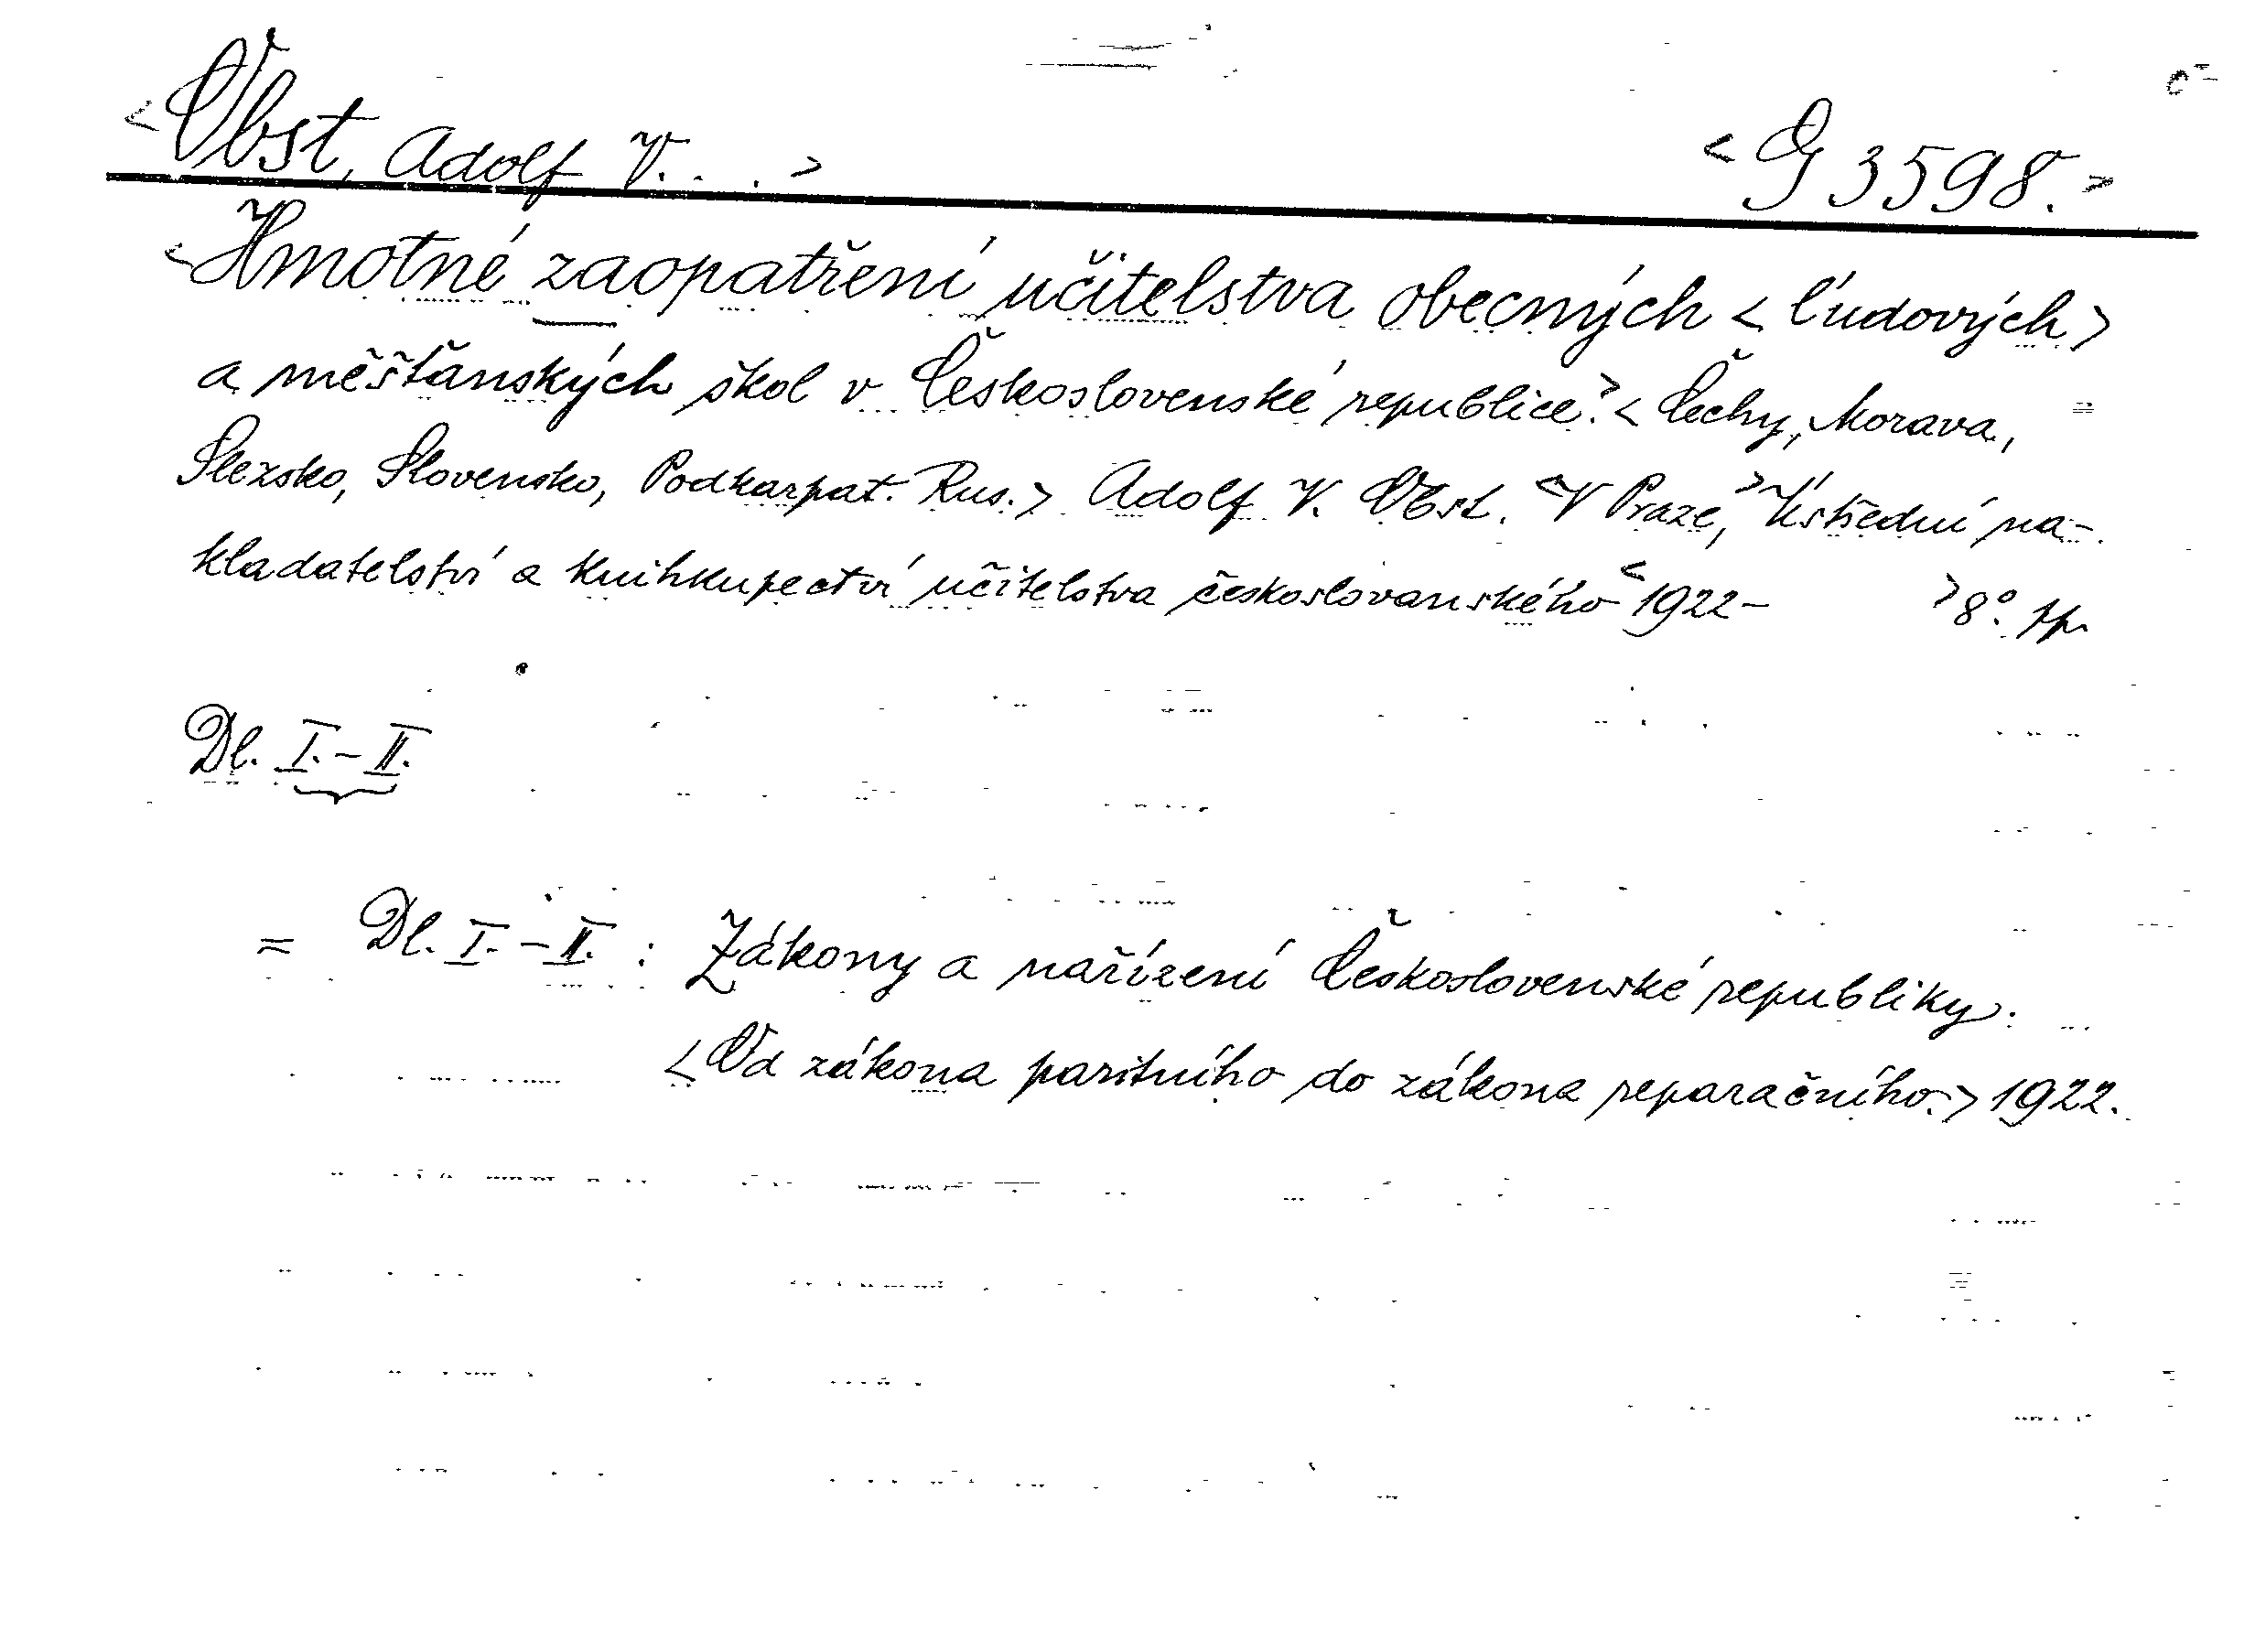 <Obst, Adolf V. . . .> <G 3598.>
<Hmotné zaopatření učitelstva obecných <ľudových>
a měšťanských škol v Československé republice.> <Čechy, Morava,
Slezsko, Slovensko, Podkarpat. Rus.> Adolf V. Obst. <V Praze,> Ústřední na-
kladatelství a knihkupectví učitelstva českoslovanského <1922- >8°.
Dl. I.-II.
= Dl. I.-II. : Zákony a nařízení Československé republiky.
<Od zákona paritního do zákona reparačního.> 1922.